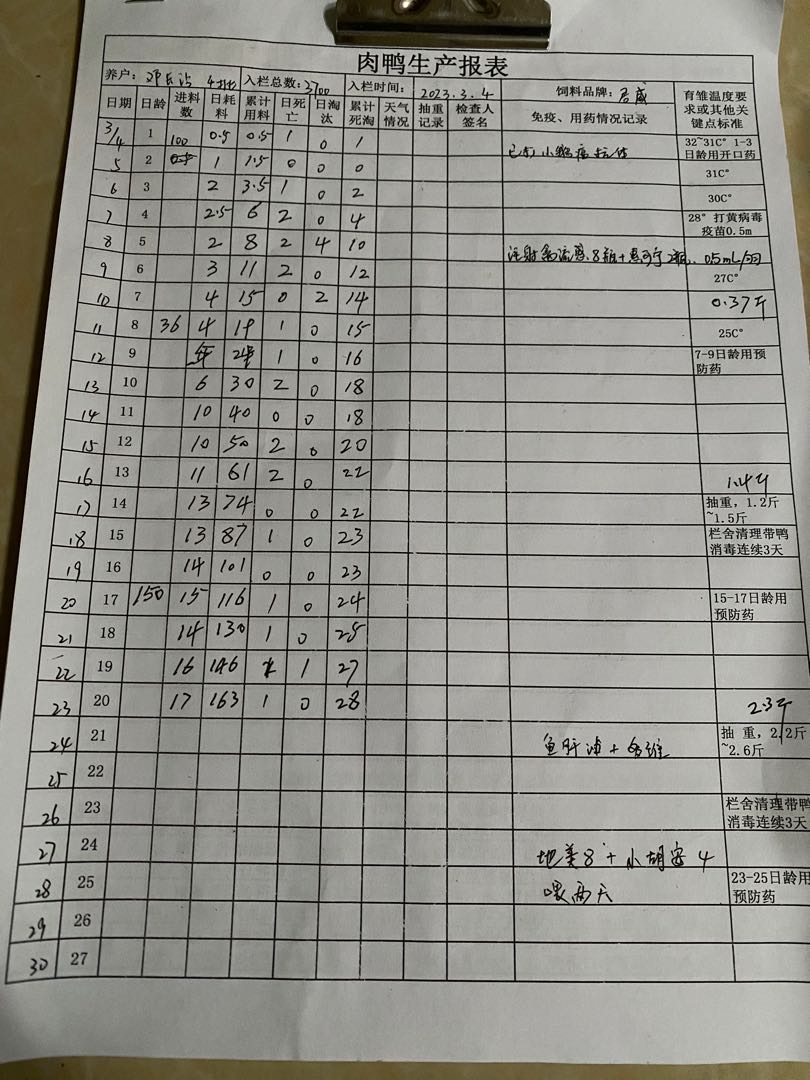 肉鸭生产报表
养户: 4 入栏总数:3700 入栏时间: 2023.3.4 饲料品牌:
日期 日龄 进料数 日耗料 累计用料 日死亡 日淘汰 累计死淘 天气情况 抽重记录 检查人签名 免疫、用药情况记录 育雏温度要求或其他关键点标准
3/4 1 100 0.5 0.5 1 0 1 32~31C° 1-3日龄用开口药
5 2 1 1.5 0 0 0 31C°
6 3 2 3.5 1 0 2 30C°
7 4 2.5 6 2 0 4 28°打黄病毒疫苗0.5m
8 5 2 8 2 4 10 注射禽流感8瓶+ 0.5mL/羽
9 6 3 11 2 0 12 27C°
10 7 4 15 0 2 14 0.37斤
11 8 36 4 19 1 0 15 25C°
12 9 1 0 16 7-9日龄用预防药
13 10 6 30 2 0 18
14 11 10 40 0 0 18
15 12 10 50 2 0 20
16 13 11 61 2 0 22 1.4斤
17 14 13 74 0 0 22 抽重，1.2斤~1.5斤
18 15 13 87 1 0 23 栏舍清理带鸭消毒连续3天
19 16 14 101 0 0 23
20 17 150 15 116 1 0 24 15-17日龄用预防药
21 18 14 130 1 0 25
22 19 16 146 1 27
23 20 17 163 1 0 28 2.3斤
24 21 鱼肝油+多维 抽 重，2.2斤~2.6斤
25 22
26 23 栏舍清理带鸭消毒连续3天
27 24 地美8+小胡安4
28 25 喂两天 23-25日龄用预防药
29 26
30 27